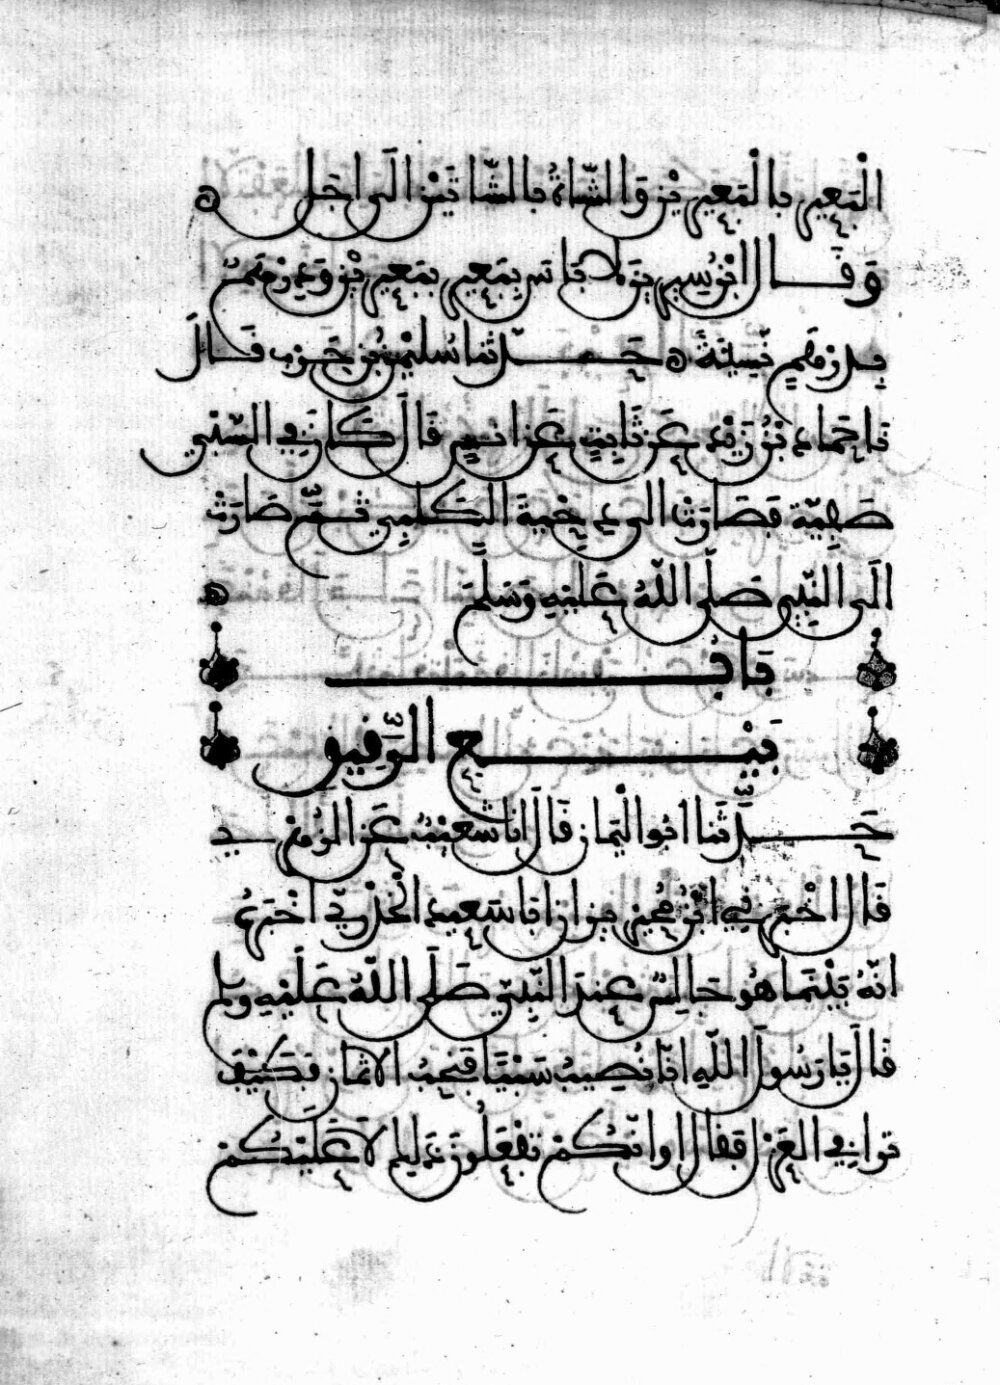 الْبَعِيرِ بِالْبَعِيرَيْنِ وَالشَّاةُ بِالشَّاتَيْنِ الَى اجَلٍ
وَقَالَ ابْنُ سِيرِينَ لَا بَاسَ بِبَعِيرٍ بِبَعِيرَيْنِ وَدِرْهَمٍ
بِدِرْهَمٍ نَسِيئَةً حَدَّثَنَا سُلَيْمَنُ بْنُ حَرْبٍ قَالَ
نَا حَمَّادُ بْنُ زَيْدٍ عَنْ ثَابِتٍ عَنْ انَسٍ قَالَ كَانَ فِي السَّبْيِ
صَفِيَّة فَصَارَتْ الَى دِحْيَةَ الْكَلْبِيِّ ثُمَّ صَارَتْ
الَى النَّبِيِّ صَلَّى اللَّهُ عَلَيْهِ وَسَلَّمَ
بَابُ
بَيْعِ الرَّقِيقِ
حَدَّثَنَا ابُو الْيَمَانِ قَالَ انَا شُعَيْبٌ عَنِ الزُّهْرِيِّ
قَالَ اخْبَرَنِي ابْنُ مُحَيْرِيزٍ انَّ ابَا سَعِيدٍ الْخُدْرِيَّ اخْبَرَهُ
انَّهُ بَيْنَمَا هُوَ جَالِسٌ عِنْدَ النَّبِيِّ صَلَّى اللَّهُ عَلَيْهِ وسلم
قَالَ يَا رَسُولَ اللَّهِ انَّا نُصِيبُ سَبْيًا فَنُحِبُّ الاثْمَانَ فَكَيْفَ
تَرَى فِي الْعَزْلِ فَقَالَ اوَانَّكُمْ تَفْعَلُونَ ذَلِكَ لَا عَلَيْكُمْ